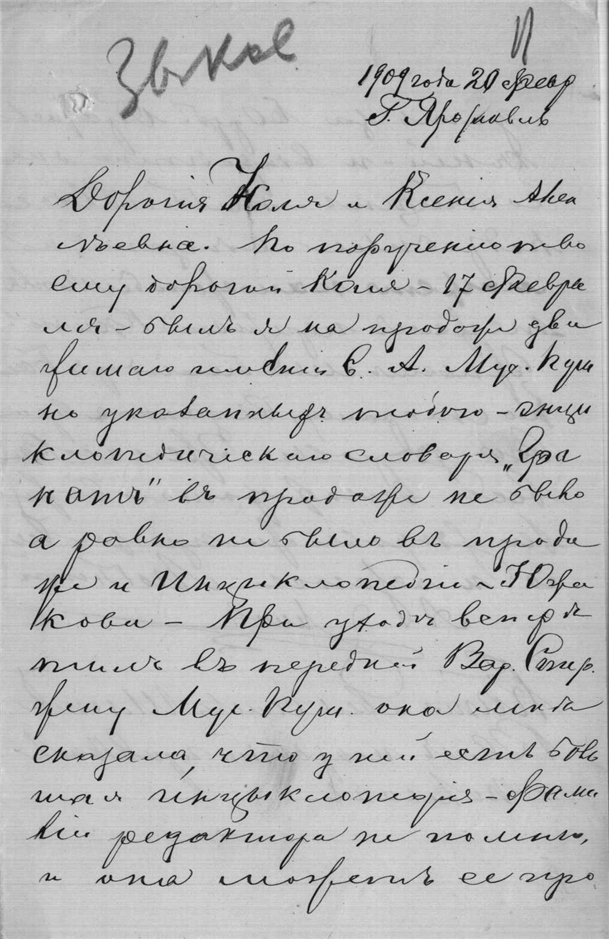 1909 года 20 Февр
Г. Ярославль
Дорогия Коля и Ксения Анем
тьевна. По поручению тво
ему дорогой Коля – 17 Февра
ля – былъ я на продаже дви
жимаго имения С. А. Мус. Пуш
но указанныхъ тобою – энци
клопедическаго словаря „Гра
натъ" въ продаже не было
а равно не было въ прода
же и Инцыклопедии – Южа
кова – При уходе встре
тилъ въ передней Вар.
жену Мус. Пуш. она мне
сказала, что у ней есть боль
шая инцыклопедия – фами
лии редактора не помню,
и она можетъ ее про